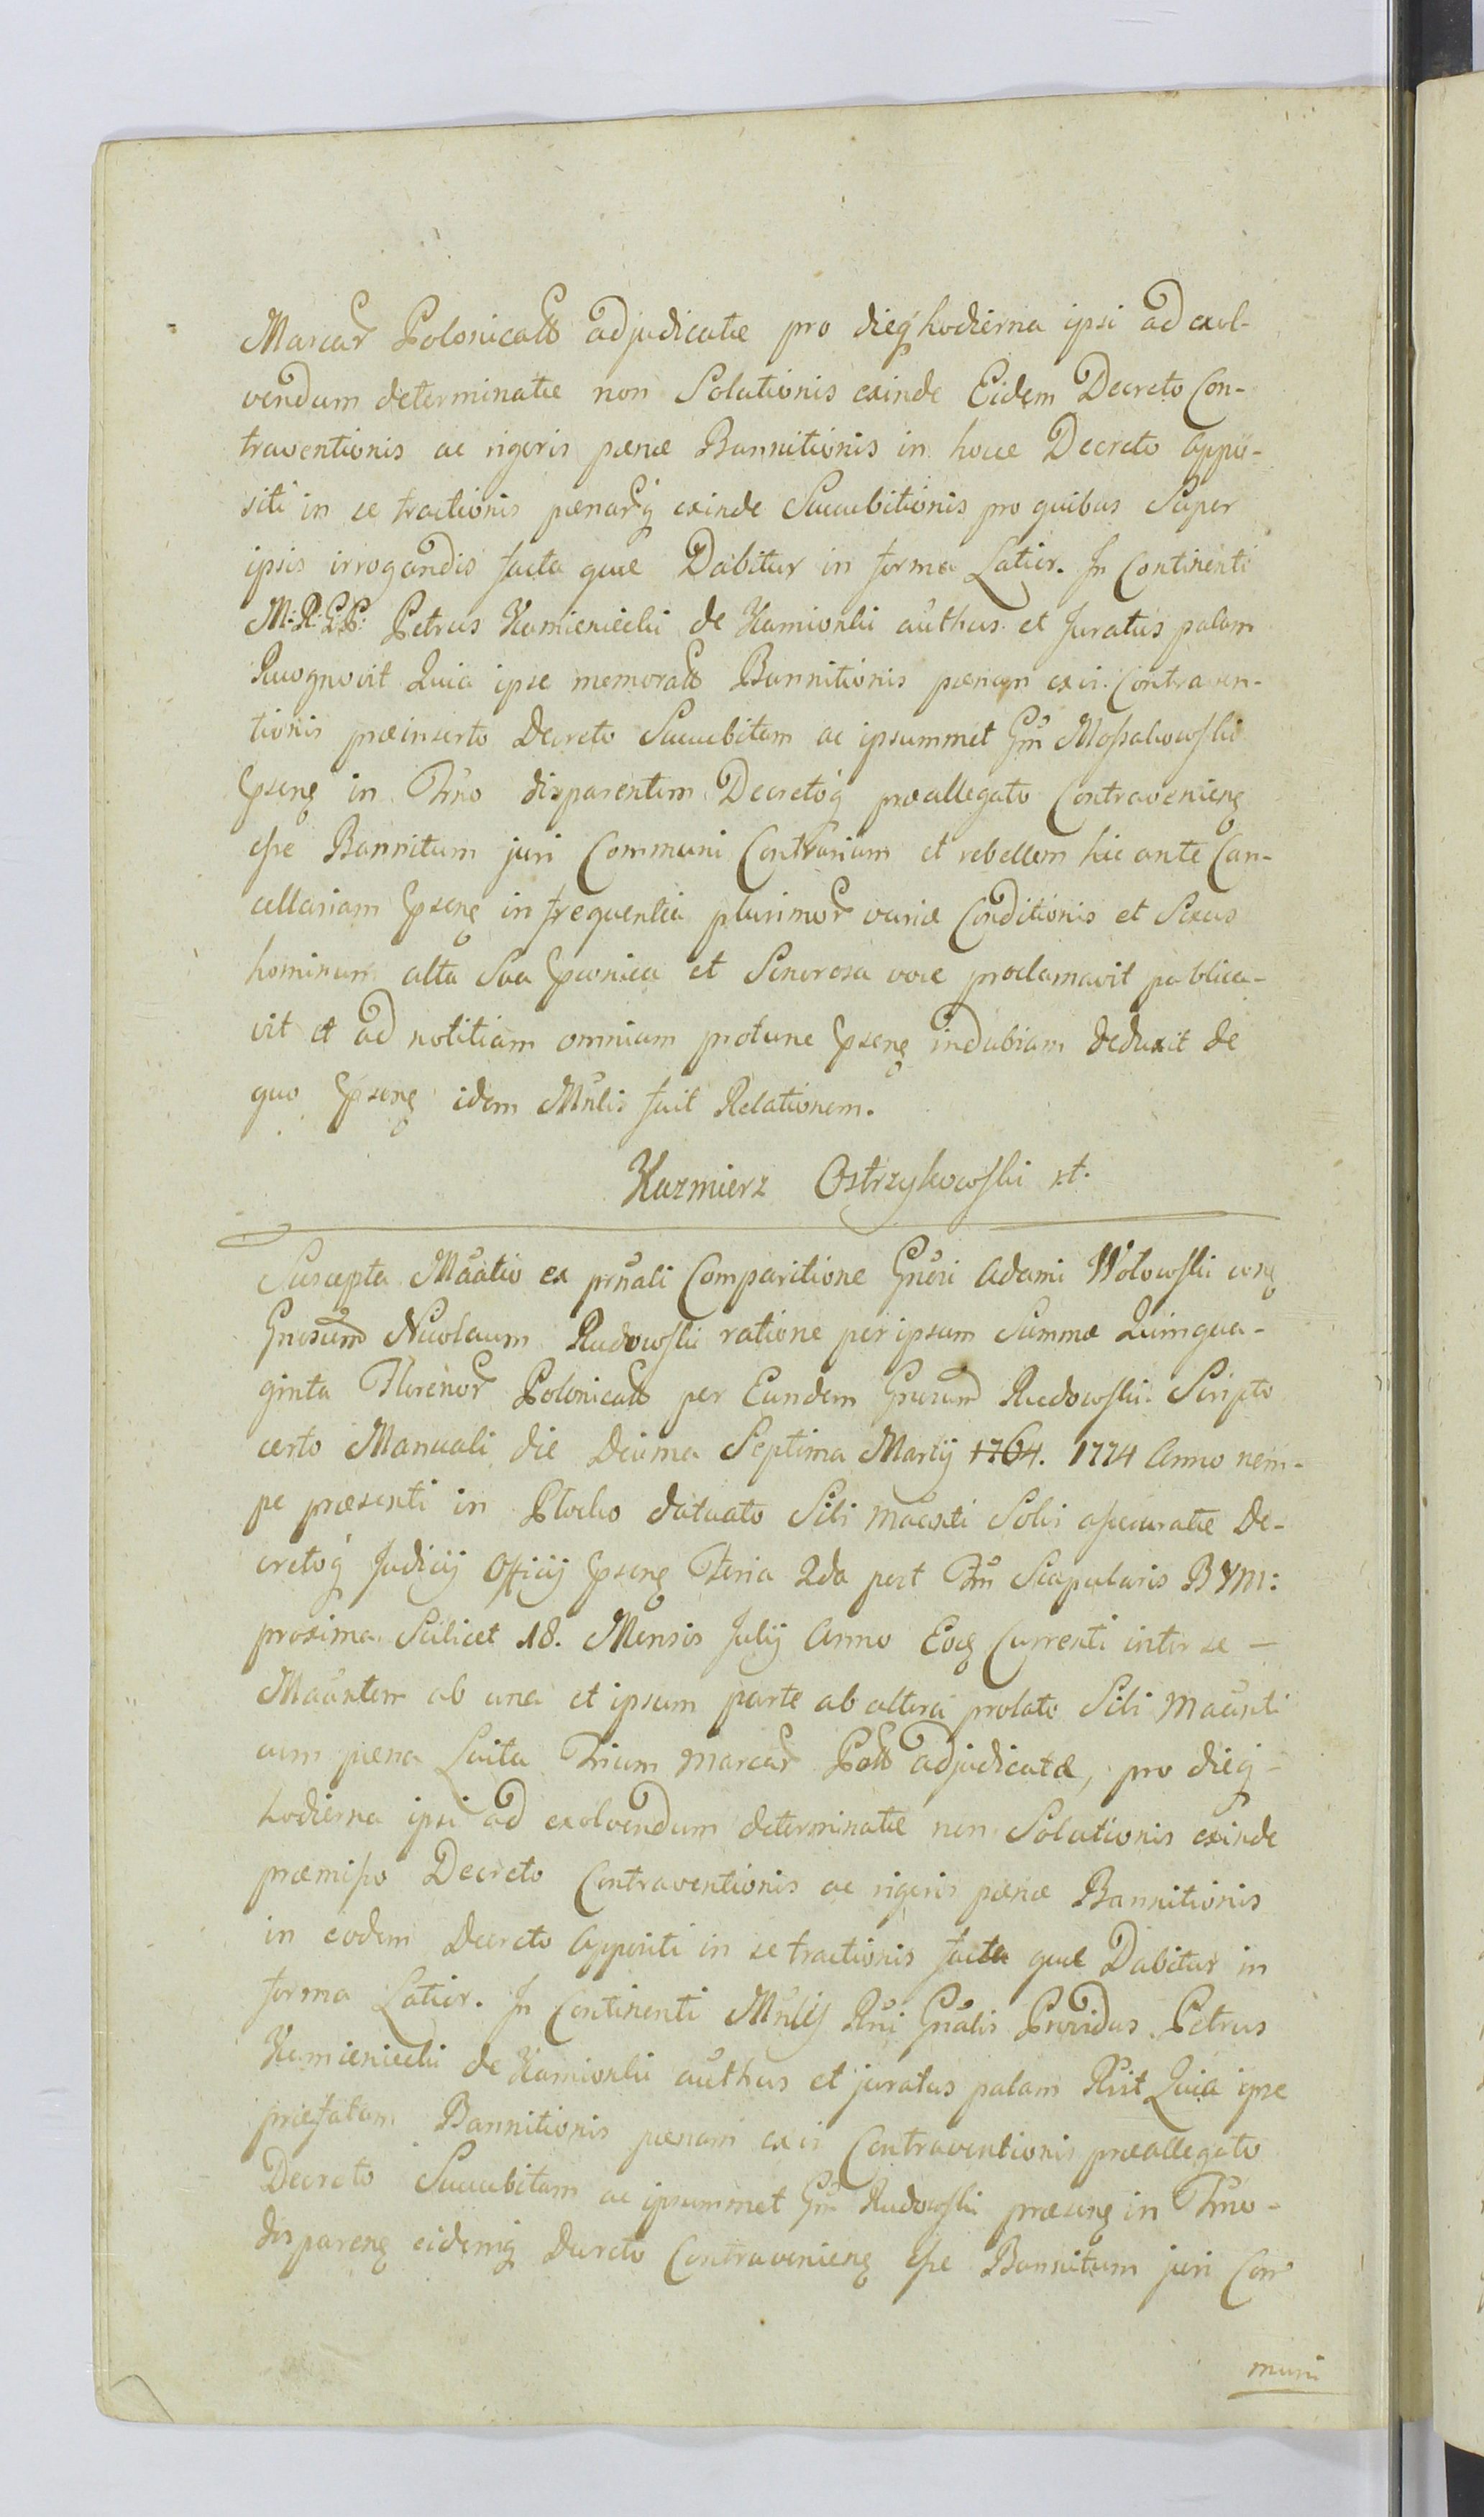 Marcar Polonicall adjudicatæ pro dieq hodierna ipsi ad exol-
vendum determinatæ non Solutionis exinde Eidem Decreto Con-
traventionis ac rigoris pœnæ Bannitionis in hocce Decreto appo-
siti in se tractionis pœnarq exinde Succubitionis pro quibus Super
ipsis irrogandis facta quæ Dabitur in forma Latior. In Continenti
M: R: G: P: Petrus Kamieniecki de Kamionki authus et Juratus palam
Recognovit Quia ipse memorall Bannitionis pœnam exir. Contraven-
tionis præinserto Decreto Succubitam ac ipsummet Gm Mossakowski
Ipseng in Tmo disparentem Decretoq præallegato Contravenieng
esse Bannitum juri Communi Contrarium et rebellem hic ante Can-
cellariam Ipseng in frequentia plurimor variæ Conditionis et Sexus
hominum alta Sua Ipsonica et Sonorosa voce proclamavit publica-
vit et ad notitiam omnium protunc Ipseng indubiam deduxit de
quo Ipseng idem Mnlis fuit Relationem.
Kazmierz Ostrzykowski mt.
Suscepta Maatio ex prnali Comparitione Gnosi Adami Wołowski cong
Gnosum Nicolaum Rudowski ratione per ipsum Summæ Quinqua-
ginta Florenor Polonicall per Eundem Gnosum Rudowski Scripto
certo Manuali die Decima Septima Martij 1764. 1774 Anno nem-
pe præsenti in Płocko datuato Sibi Maanti Solvi assecuratæ De-
cretoq Judicij Officij Ipseng Feria 2da post Fm Scapularis BVM:
proxima Scilicet 18. Mensis Julij Anno Eoq Currenti inter se —
Maantem ab una et ipsum parte ab altera prolato Sibi Maanti
cum pœna Luita Trium Marcar Poll adjudicatæ, pro dieq -
hodierna ipsi ad exolvendum determinatæ non Solutionis exinde
præmisso Decreto Contraventionis ac rigoris pœnæ Bannitionis
in eodem Decreto Appositi in se tractionis facta quæ Dabitur in
forma Latior. In Continenti Mnlis Rni Gnalis Providus Petrus
Kamieniecki de Kamionki authus et juratus palam Rvit Quia ipse
præfatam Bannitionis pœnam ex is Contraventionis præallegato
Decreto Succubitam ac ipsummet Gm Rudowski præseng in Tmo -
dispareng eidemq Decreto Contravenieng esse Bannitum juri Com
muni